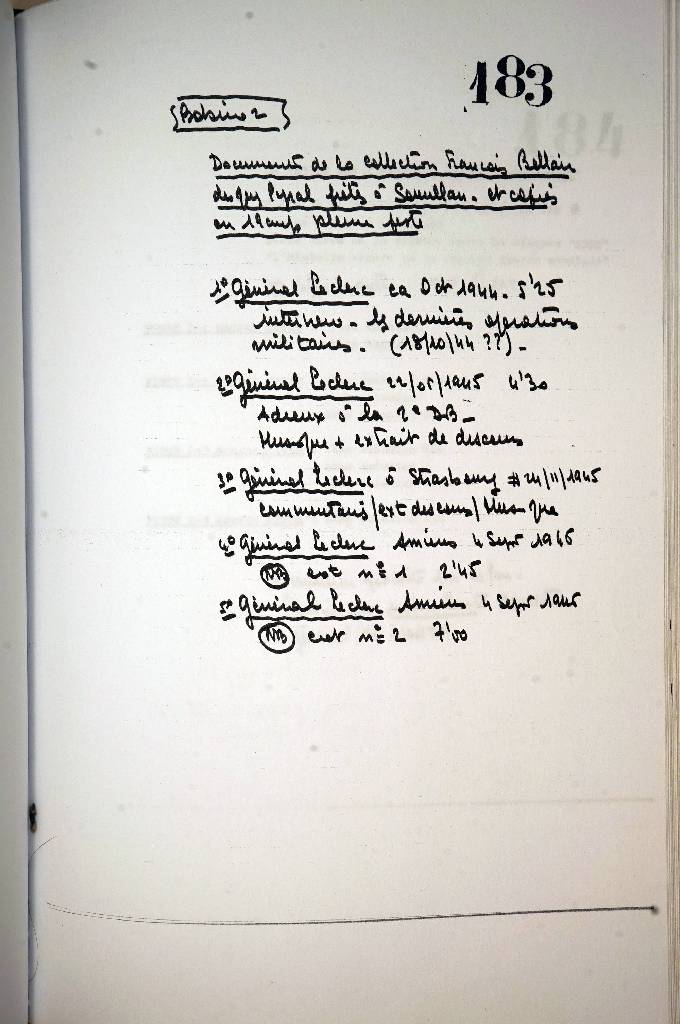 183
Bobine 2
Documents de la collection François Bellair
prêtés à et copiés
en 19 cm/s pleine piste
1° Général Leclerc ca Oct 1944. 5'25
interview - les dernières opérations
militaires. (18/10/44 ??) -
2° Général Leclerc 22/05/1945 4'30
Adieux à la 2e DB -
Musique + extrait de discours
3° Général Leclerc à Strasbourg # 24/11/1945
commentaires/ext discours/Musique
4° Général Leclerc Amiens 4 Sept 1945
NB ext n° 1 2'45
5° Général Leclerc Amiens 4 Sept 1945
NB ext n° 2 7'00